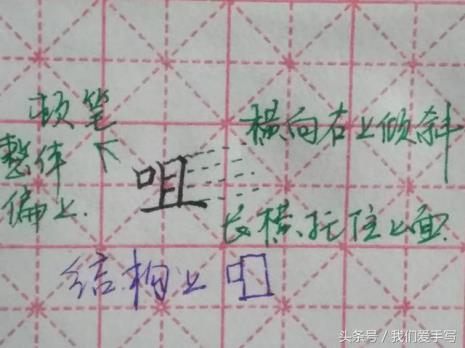 顿笔
整体
偏上.
咀
横向右上倾斜
长横托住上面.
结构上
头条号 / 我们爱手写